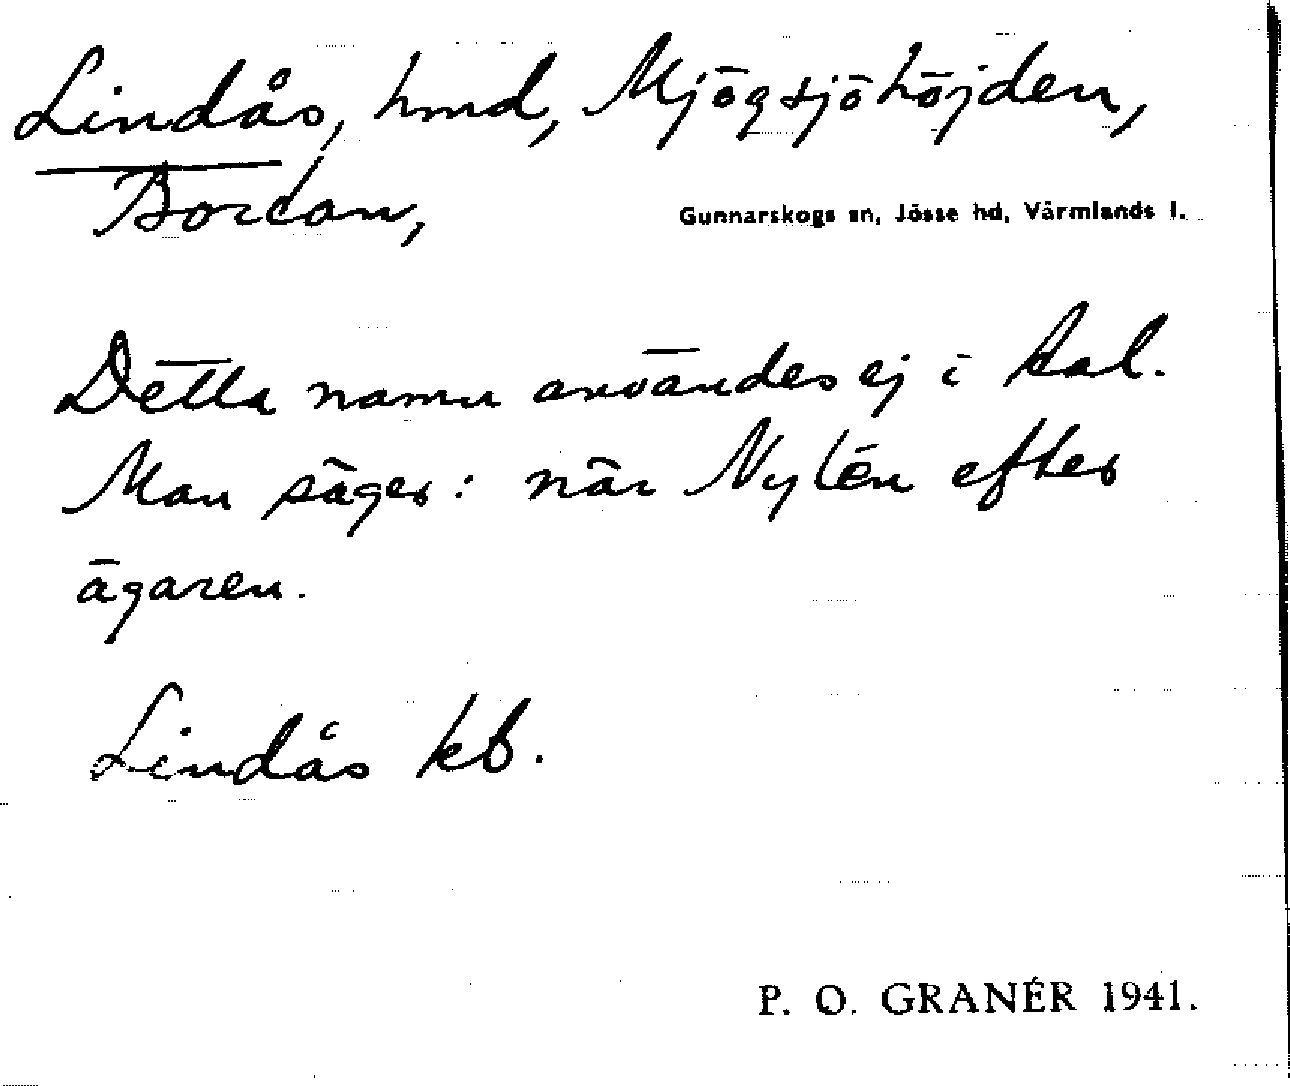 Lindås, hmd, Mjögsjöhöjden,
Bortan,
Gunnarskogs sn, Jösse hd, Värmlands l.
Detta namn användes ej i tal.
Man säger: när Nylén efter
ägaren.
Lindås kb.
P. O. GRANÉR 1941.